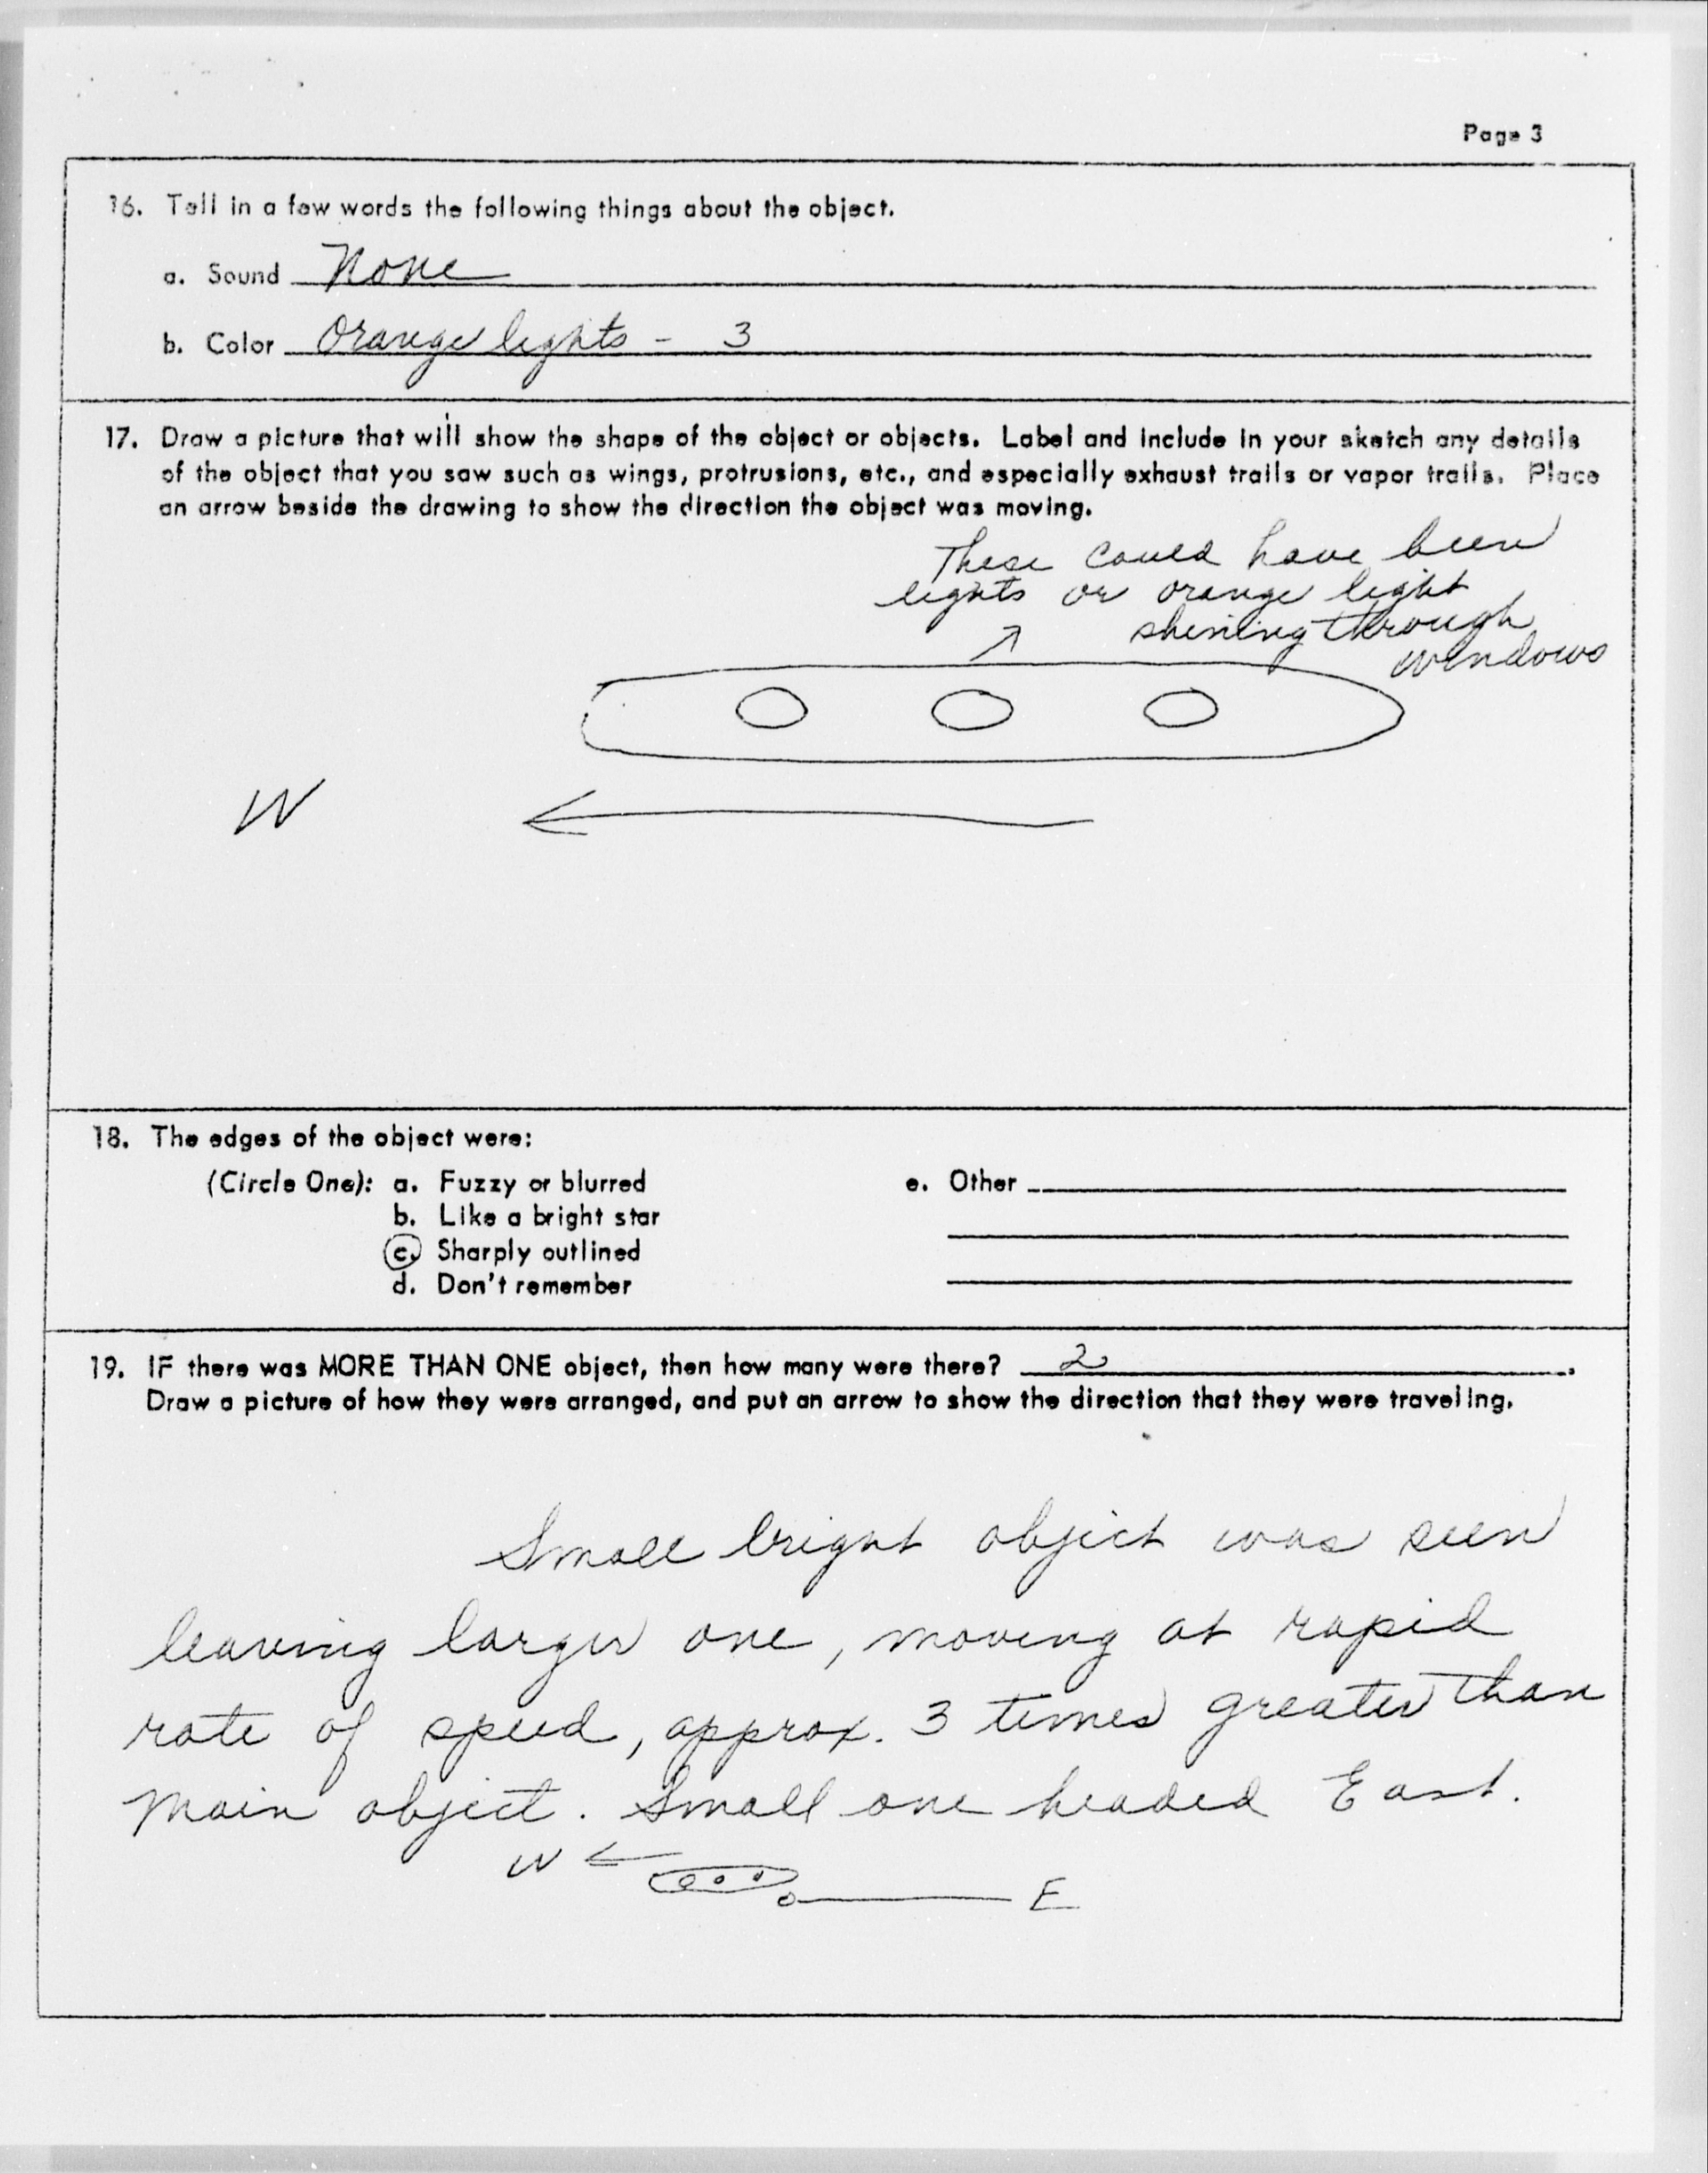 Page 3
16. Tell in a few words the following things about the object.
a. Sound None
b. Color Orange lights - 3
17. Draw a picture that will show the shape of the object or objects. Label and include in your sketch any details
of the object that you saw such as wings, protrusions, etc., and especially exhaust trails or vapor trails. Place
an arrow beside the drawing to show the direction the object was moving.
These could have been
lights or orange light
shining through
windows
W
18. The edges of the object were:
(Circle One): a. Fuzzy or blurred e. Other
b. Like a bright star
c. Sharply outlined
d. Don't remember
19. IF there was MORE THAN ONE object, then how many were there? 2.
Draw a picture of how they were arranged, and put an arrow to show the direction that they were traveling.
Small bright object was seen
leaving larger one, moving at rapid
rate of speed, approx. 3 times greater than
main object. Small one headed East.
W
E